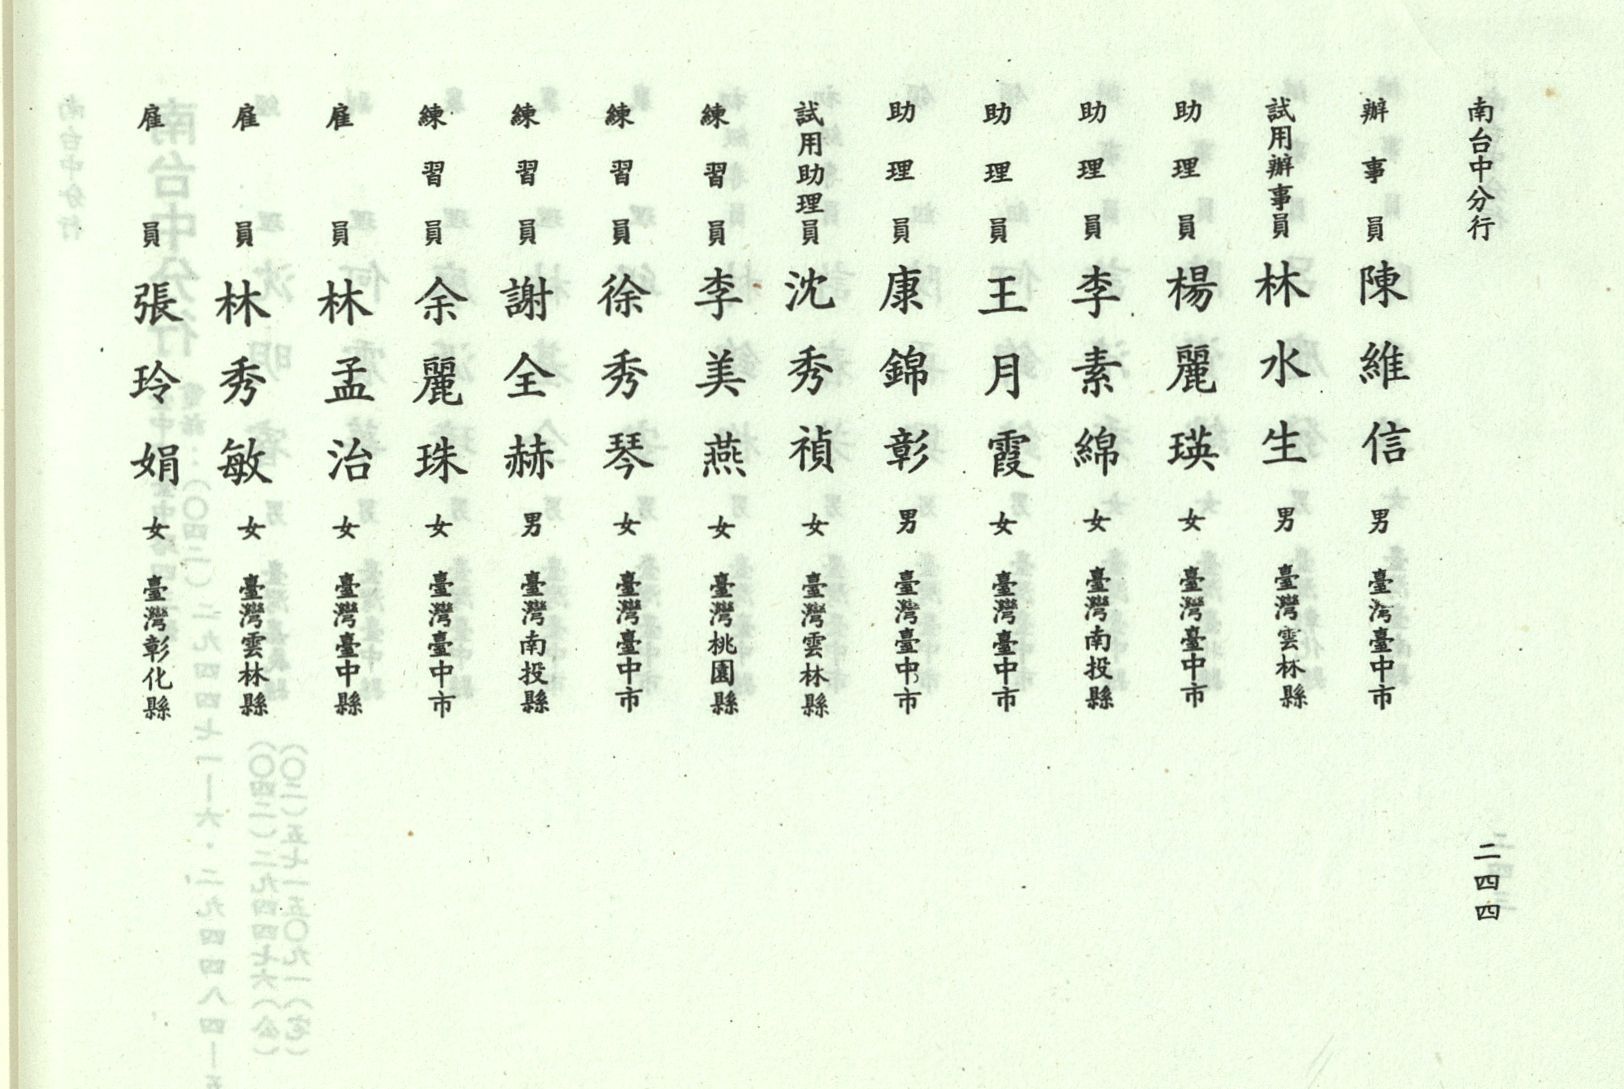 南台中分行
辦事員 陳維信 男 臺灣臺中市
試用辦事員 林水生 男 臺灣雲林縣
助理員 楊麗瑛 女 臺灣臺中市
助理員 李素綿 女 臺灣南投縣
助理員 王月霞 女 臺灣臺中市
助理員 康錦彰 男 臺灣臺中市
試用助理員 沈秀禎 女 臺灣雲林縣
練習員 李美燕 女 臺灣桃園縣
練習員 徐秀琴 女 臺灣臺中市
練習員 謝全赫 男 臺灣南投縣
練習員 余麗珠 女 臺灣臺中市
雇員 林孟治 女 臺灣臺中縣
雇員 林秀敏 女 臺灣雲林縣
雇員 張玲娟 女 臺灣彰化縣
二四四